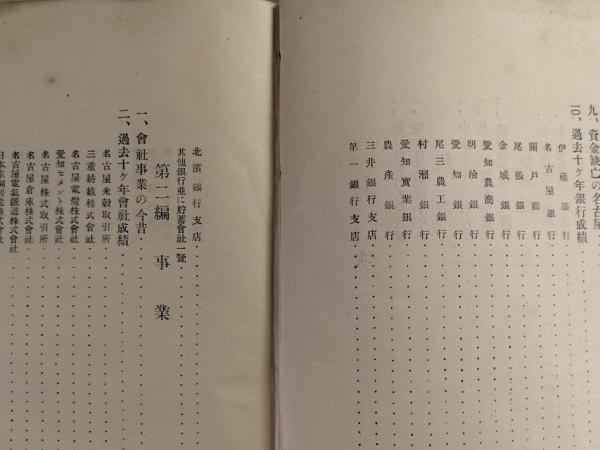 九、資金缺亡の名古屋
一〇、過去十ヶ年銀行成績
伊藤銀行
名古屋銀行
關戸銀行
尾張銀行
金城銀行
愛知農商銀行
明治銀行
愛知銀行
尾三農工銀行
村瀬銀行
愛知實業銀行
農產銀行
三井銀行支店
第一銀行支店
北濱銀行支店
其他銀行並に貯蓄會社一覽
第二編 事業
一、會社事業の今昔
二、過去十ヶ年會社成績
名古屋米穀取引所
三重紡績株式會社
名古屋電燈株式會社
愛知セメント株式會社
名古屋株式取引所
名古屋倉庫株式會社
名古屋電氣鐵道株式會社
日本車輛製造株式會社